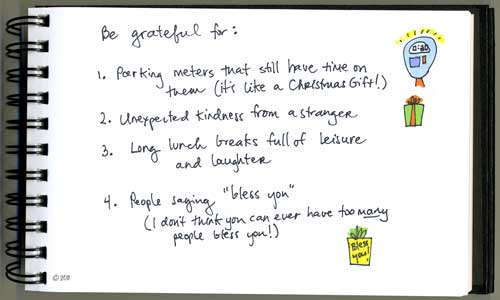 Be grateful for:
0:20
1. Parking meters that still have time on
them (it's like a Christmas Gift!)
2. Unexpected kindness from a stranger
3. Long lunch breaks full of leisure
and laughter
4. People saying "bless you"
(I don't think you can ever have too many
people bless you!)
Bless
you!